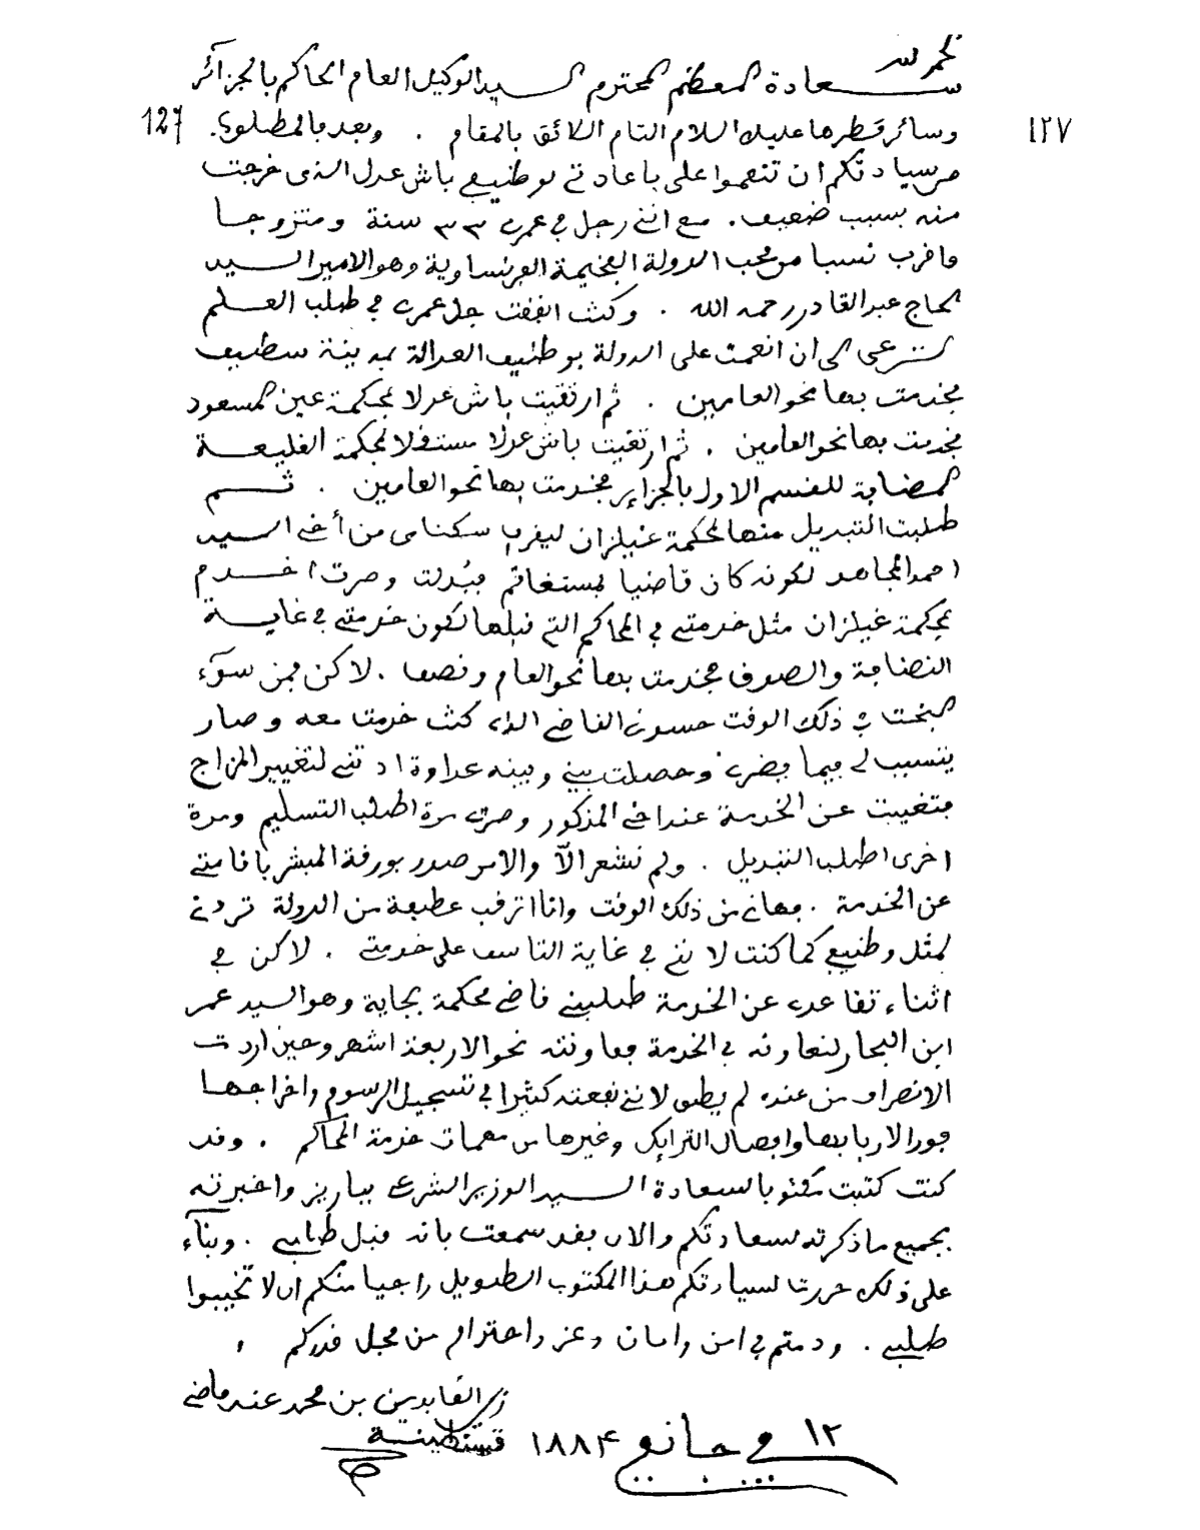 الحمد لله
سعادة المعظم المحترم السيد الوكيل العام الحاكم بالجزائر
١٢٧
وسائر قطرها عليك السلام التام اللائق بالمقام . وبعد بالمطلوب
127
من سيادتكم ان تنعموا علي باعادتي لوظيفي باش عدل الذي خرجت
منه بسبب ضعيف . مع انني رجل في عمري ٣٣ سنة ومتزوجا
واقرب نسبا من محب الدولة الفخيمة الفرنساوية وهو الامير السيد
الحاج عبد القادر رحمه الله . وكنت انفقت جل عمري في طلب العلم
الشرعي الى ان انعمت علي الدولة بوظيف العدالة بمدينة سطيف
فخدمت بها نحو العامين . ثم ارتقيت باش عدلا بمحكمة عين المسعود
فخدمت بها نحو العامين . ثم ارتقيت باش عدلا مستقلا بمحكمة القليعة
المضافة للقسم الاول بالجزاير فخدمت بها نحو العامين . ثم
طلبت التبديل منها لمحكمة غيلزان ليقرب سكناى من أخى السيد
احمد المجاهد لكونه كان قاضيا بمستغانم فبُدلت وصرت اخدم
بمحكمة غيلزان مثل خدمتي في المحاكم التي قبلها لكون خدمتي في غاية
النصاحة والصدق فخدمت بها نحو العام ونصف . لاكن فمن سوء
البخت في ذلك الوقت حسدني القاضي الذى كنت خدمت معه وصار
يتسبب لي فيما يضرني وحصلت بيني وبينه عداوة ادتني لتغيير المزاج
فتغيبت عن الخدمة عند اخي المذكور وصرت مرة اطلب التسليم ومرة
اخرى اطلب التبديل . ولم نشعر الاّ والامر صدر بورقة المبشر باقامتي
عن الخدمة . فهاني من ذلك الوقت وانا اترقب عطفة من الدولة تردني
لمثل وظيفي كما كنت لانني في غاية التاسف على خدمتي . لاكن في
اثناء تقاعدي عن الخدمة طلبني قاضي محكمة بجاية وهو السيد عمر
ابن النجار لنعاونه في الخدمة فعاونته نحو الاربعة اشهر وحين اردت
الانصراف من عنده لم يطق لانني نفعته كثيرا في تسجيل الرسوم واخراجها
فورا لاربابها وايصال الترايك وغيرها من مهمات خدمة المحاكم . وقد
كنت كتبت مكتوبا لسعادة السيد الوزير الشرعي بباريز واخبرته
بجميع ما ذكرته لسعادتكم والان فقد سمعت بانه قبل طلبي . وبناء
على ذلك حررت لسيادتكم هذا المكتوب الطويل راجيا منكم ان لا تخيبوا
طلبي . ودمتم في امن وامان وعز واحترام من مجل قدركم
زين العابدين بن محمد
١٢ في جانفي ١٨٨٤ قسنطينة